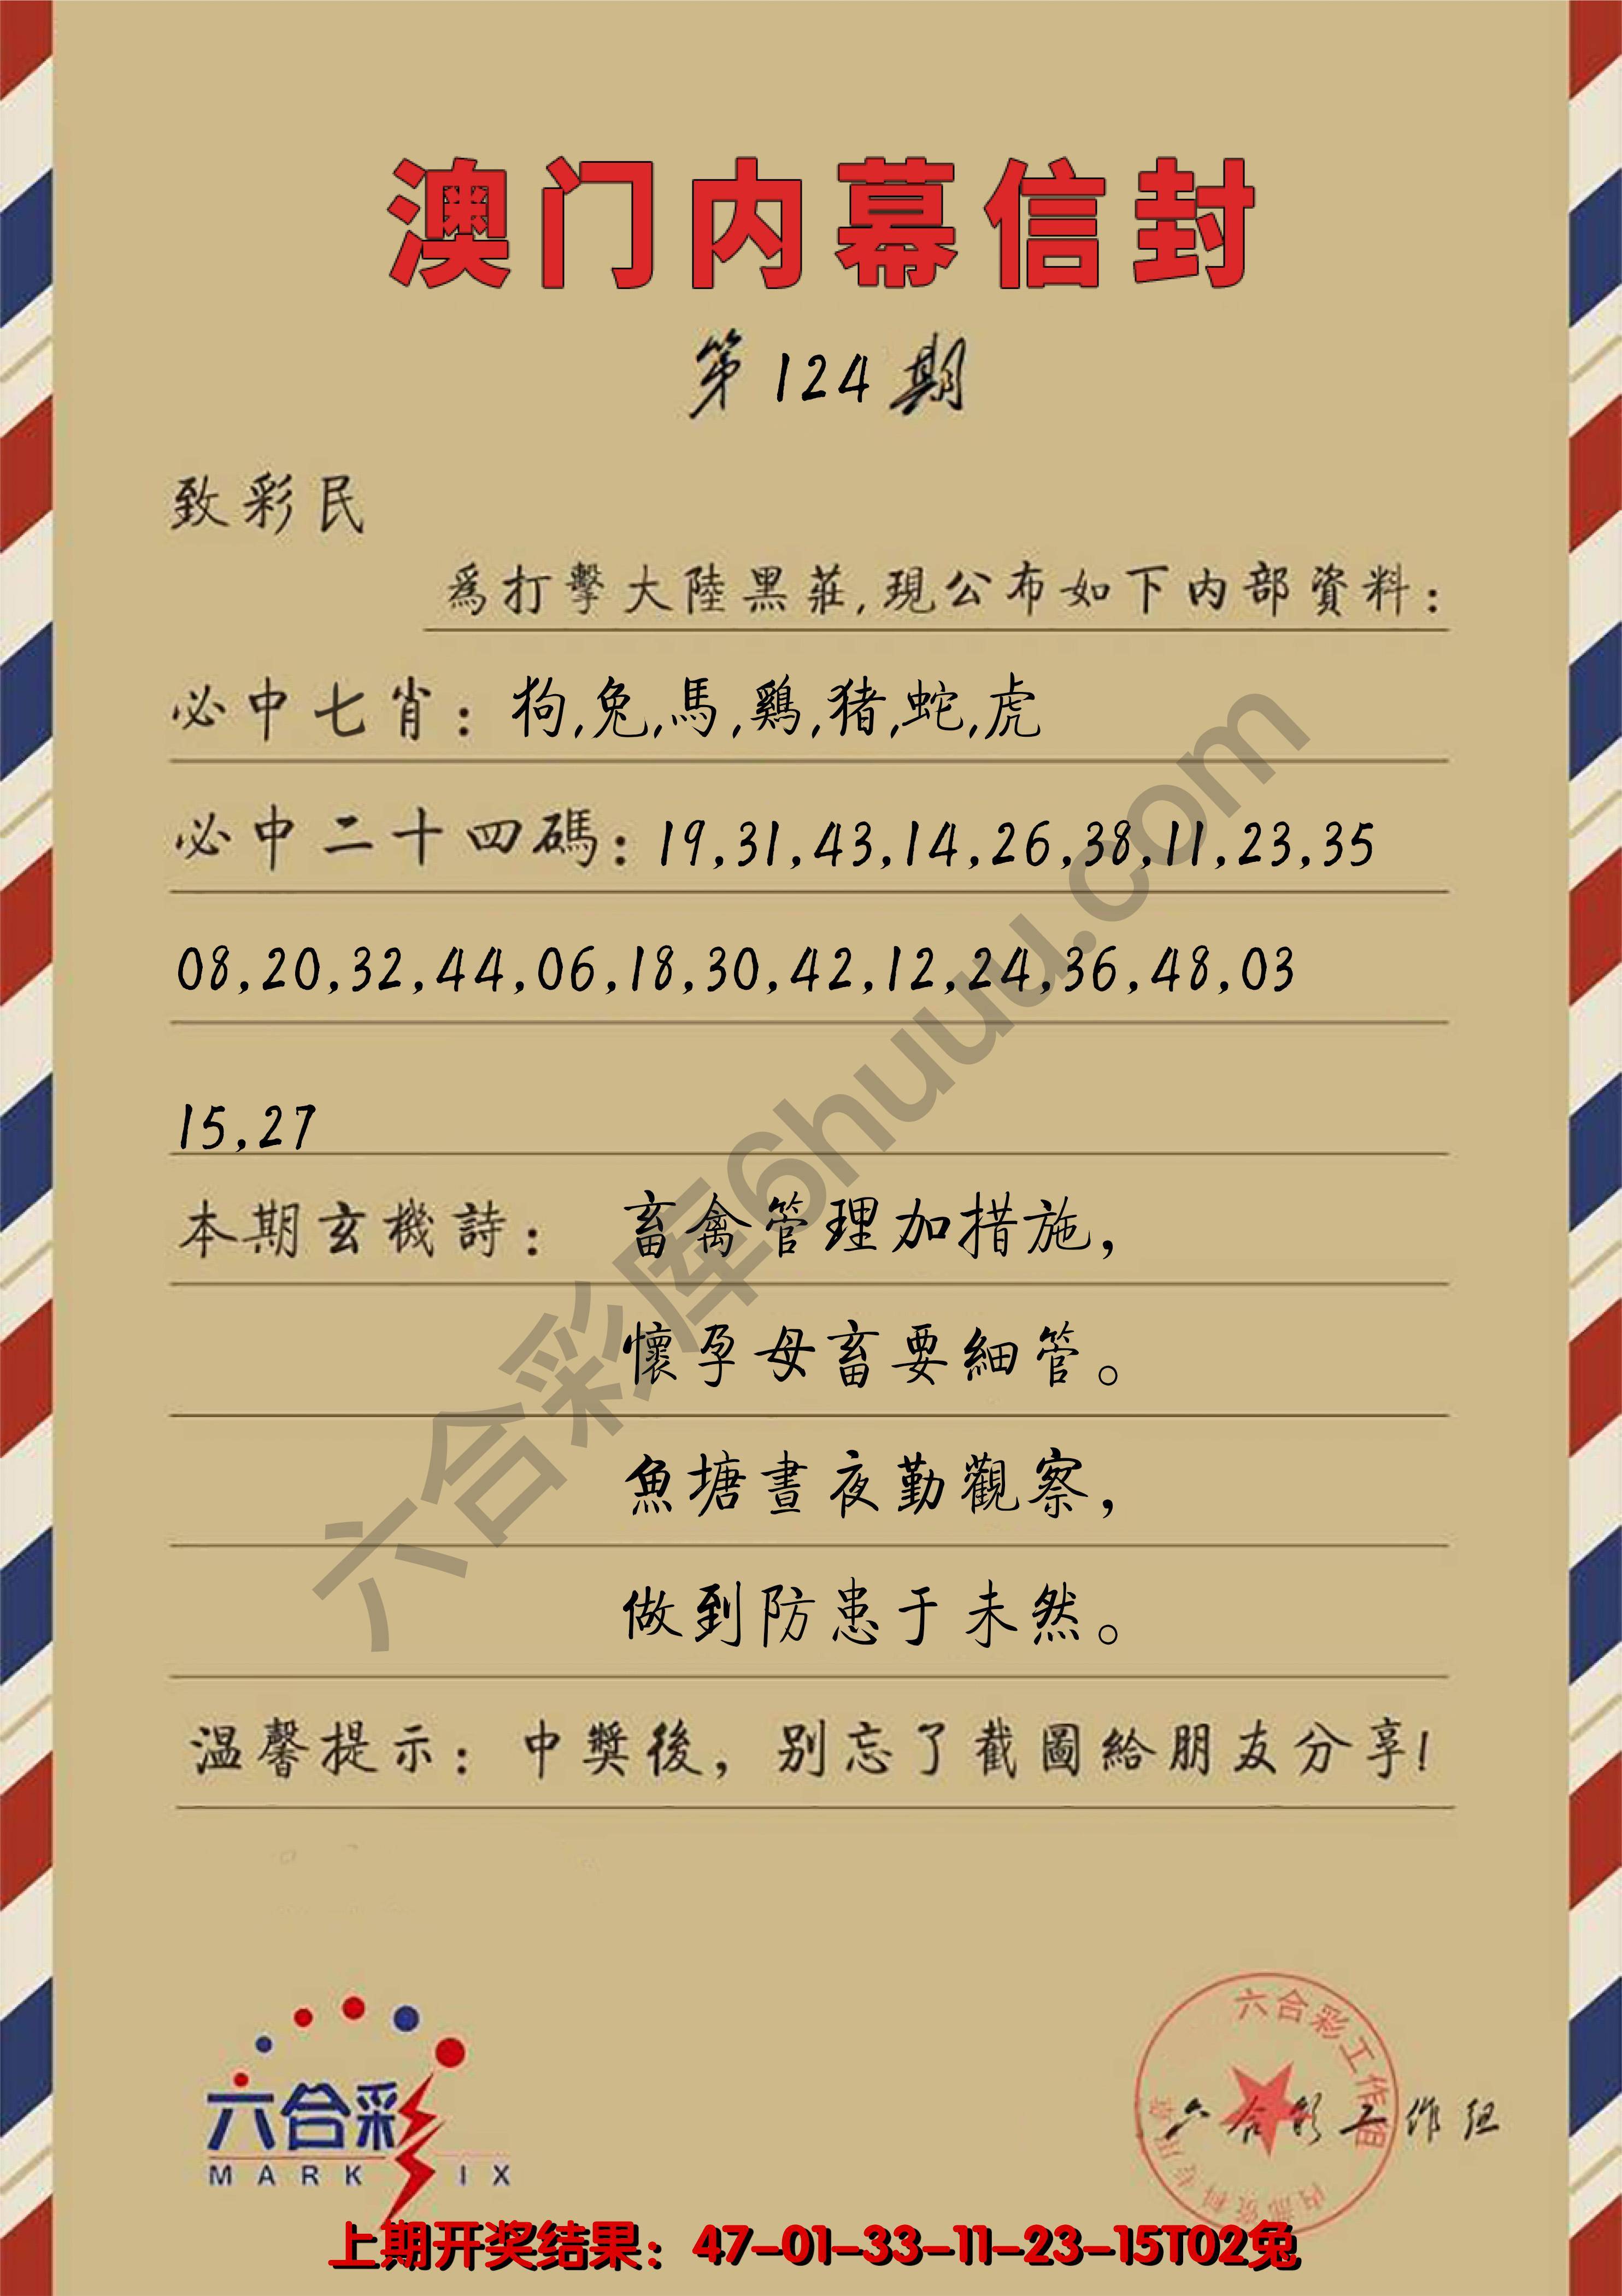 澳门内幕信封
第124期
致彩民
爲打擊大陸黑莊,現公布如下内部資料:
必中七肖:狗,兔,馬,鷄,猪,蛇,虎
必中二十四碼:19,31,43,14,26,38,11,23,35
08,20,32,44,06,18,30,42,12,24,36,48,03
15,27
本期玄機詩: 畜禽管理加措施,
懷孕母畜要細管。
魚塘晝夜勤觀察,
做到防患于未然。
温馨提示:中獎後,别忘了截圖給朋友分享!
六合彩库6huuu.com
六合彩
MARK IX
六合彩工作组
内部资料专用章
六合彩工作组
上期开奖结果:47-01-33-11-23-15T02兔